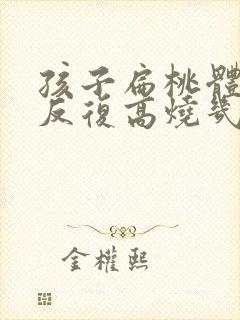 孩子扁桃體
反復高燒幾
金權熙